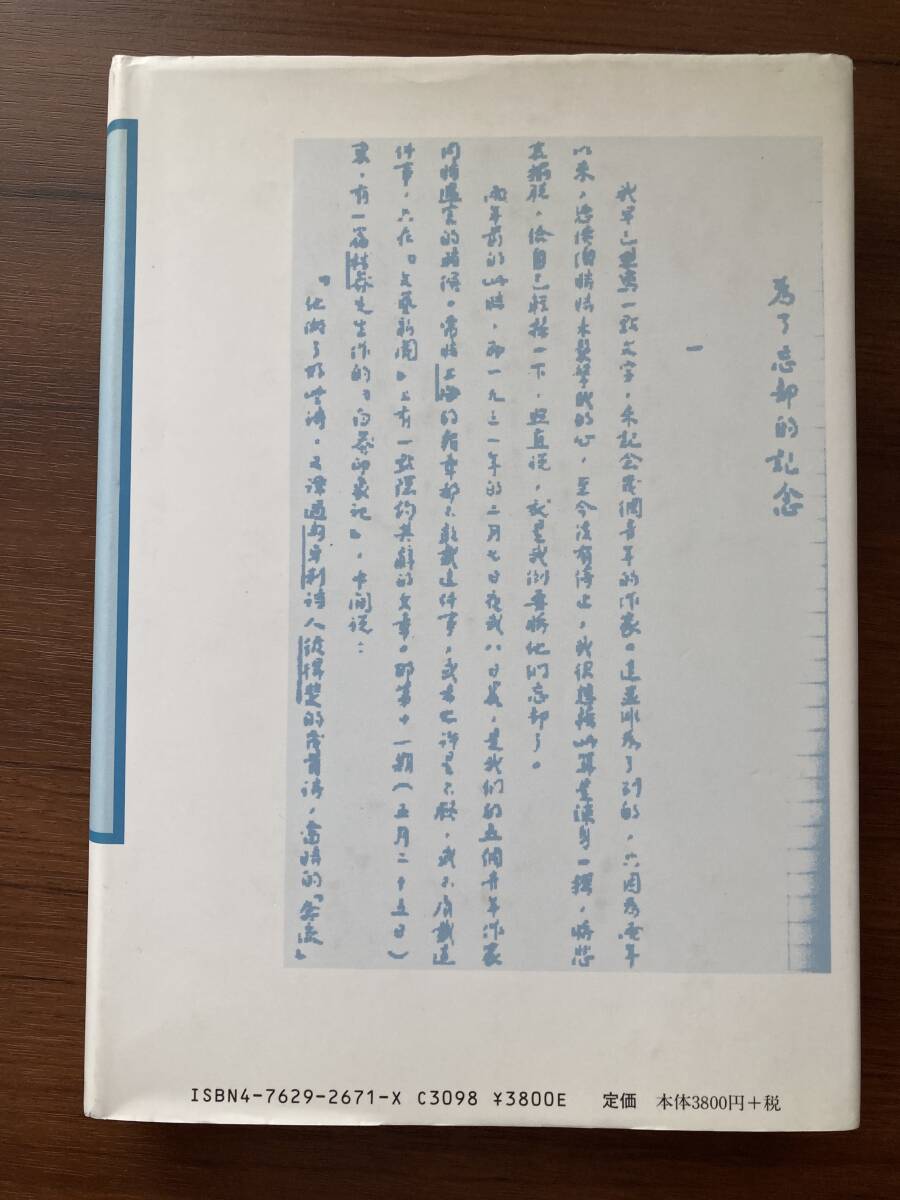 為了忘却的記念
一
我早已想寫一點文字，來記念幾個青年的作家。這並非為了別的，只因為兩年
以来，悲憤總時時来襲擊我的心，至今沒有停止，我很想藉此算是竦身一搖，將悲
哀擺脫，給自己輕松一下，照直说，就是我倒要將他们忘却了。
兩年前的此時，即一九三一年的二月七日夜或八日晨，是我们的五個青年作家
同時遇害的時候。當時上海的報章都不敢載這件事，或者也許是不願，或不屑載這
件事，只在『文藝新聞』上有一點隱約其辭的文章。那第十一期（五月二十五日）
裏，有一篇林莽先生作的『白莽印象記』，中间说：
「他做了好些诗，又譯過匈牙利诗人彼得斐的幾首诗，當時的『奔流』
ISBN4-7629-2671-X C3098 ¥3800E 定価 本体3800円＋税